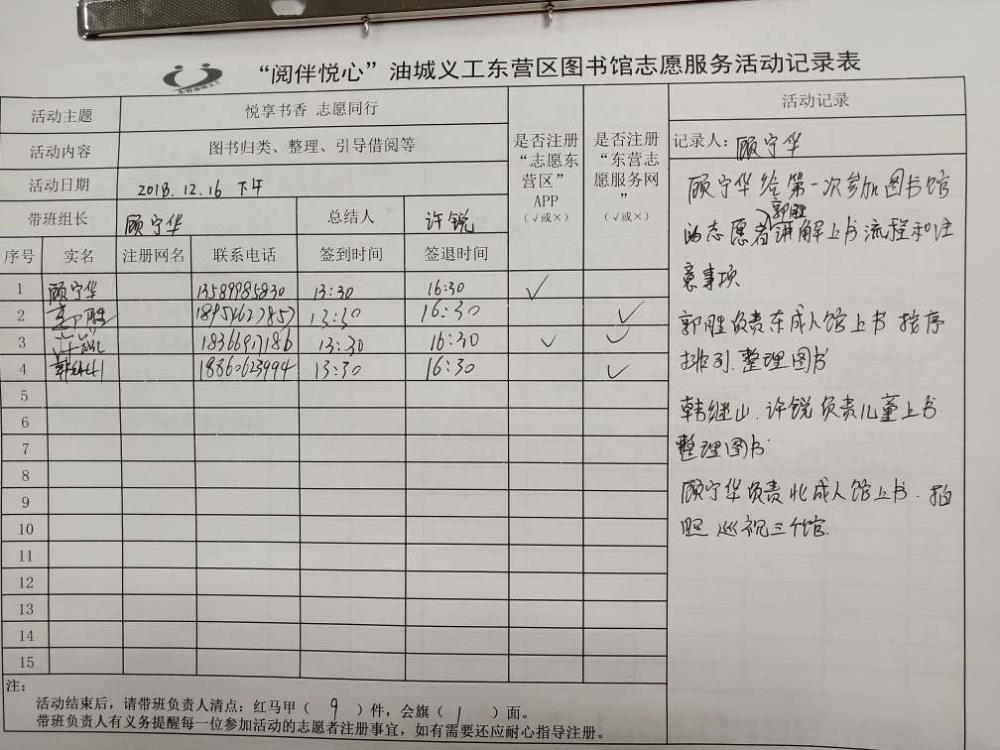 “阅伴悦心”油城义工东营区图书馆志愿服务活动记录表
活动主题 悦享书香 志愿同行
活动内容 图书归类、整理、引导借阅等
活动日期 2018.12.16 下午
带班组长 顾宁华 总结人 许锐
是否注册“志愿东营区”APP（√或×）
是否注册“东营志愿服务网”（√或×）
序号 实名 注册网名 联系电话 签到时间 签退时间
1 顾宁华 13589985830 13:30 16:30 √
2 郭胜 18954627857 13:30 16:30 √
3 许锐 18366917186 13:30 16:30 √ √
4 韩继山 18860623994 13:30 16:30 √
5
6
7
8
9
10
11
12
13
14
15
注：
活动结束后，请带班负责人清点：红马甲（ 9 ）件，会旗（ 1 ）面。
带班负责人有义务提醒每一位参加活动的志愿者注册事宜，如有需要还应耐心指导注册。
活动记录
记录人：顾宁华
顾宁华给第一次参加图书馆
的志愿者郭胜讲解上书流程和注
意事项
郭胜负责东成人馆上书 按序
排列.整理图书
韩继山.许锐负责儿童上书.
整理图书
顾宁华负责北成人馆上书.拍
照 巡视三个馆.